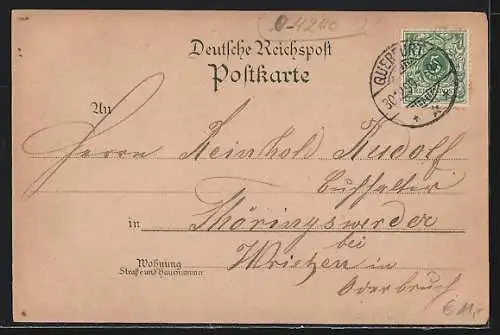 0-4240
Deutsche Reichspost
Postkarte
QUERFURT
5
An
Herrn Reinhold Rudolf
Buchhalter
in Thöringswerder
bei
Wohnung
Straße und Hausnummer
Wriezen in
Oderbruch